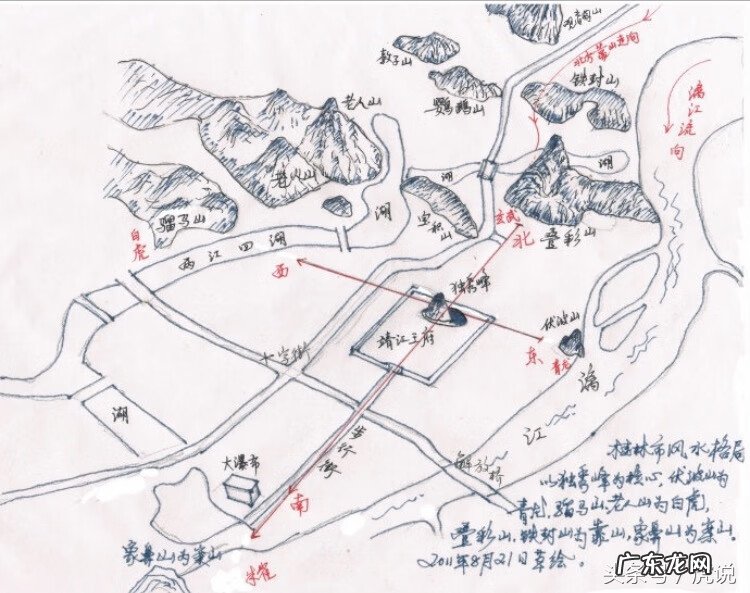 观音山
教子山
北方靠山走向
铁封山
鹦鹉山
漓江流向
老人山
老人山
湖
湖
湖
宝积山
骝马山
白虎
两江四湖
玄武
北
叠彩山
西
独秀峰
伏波山
靖江王府
东
青龙
十字街
漓
江
湖
步行街
解放桥
大瀑布
南
象鼻山为案山
朱雀
桂林市风水格局
以独秀峰为核心,伏波山为
青龙,骝马山,老人山为白虎,
叠彩山,铁封山为靠山,象鼻山为案山。
2011年8月21日草绘。
头条号/虎说
广东龙网